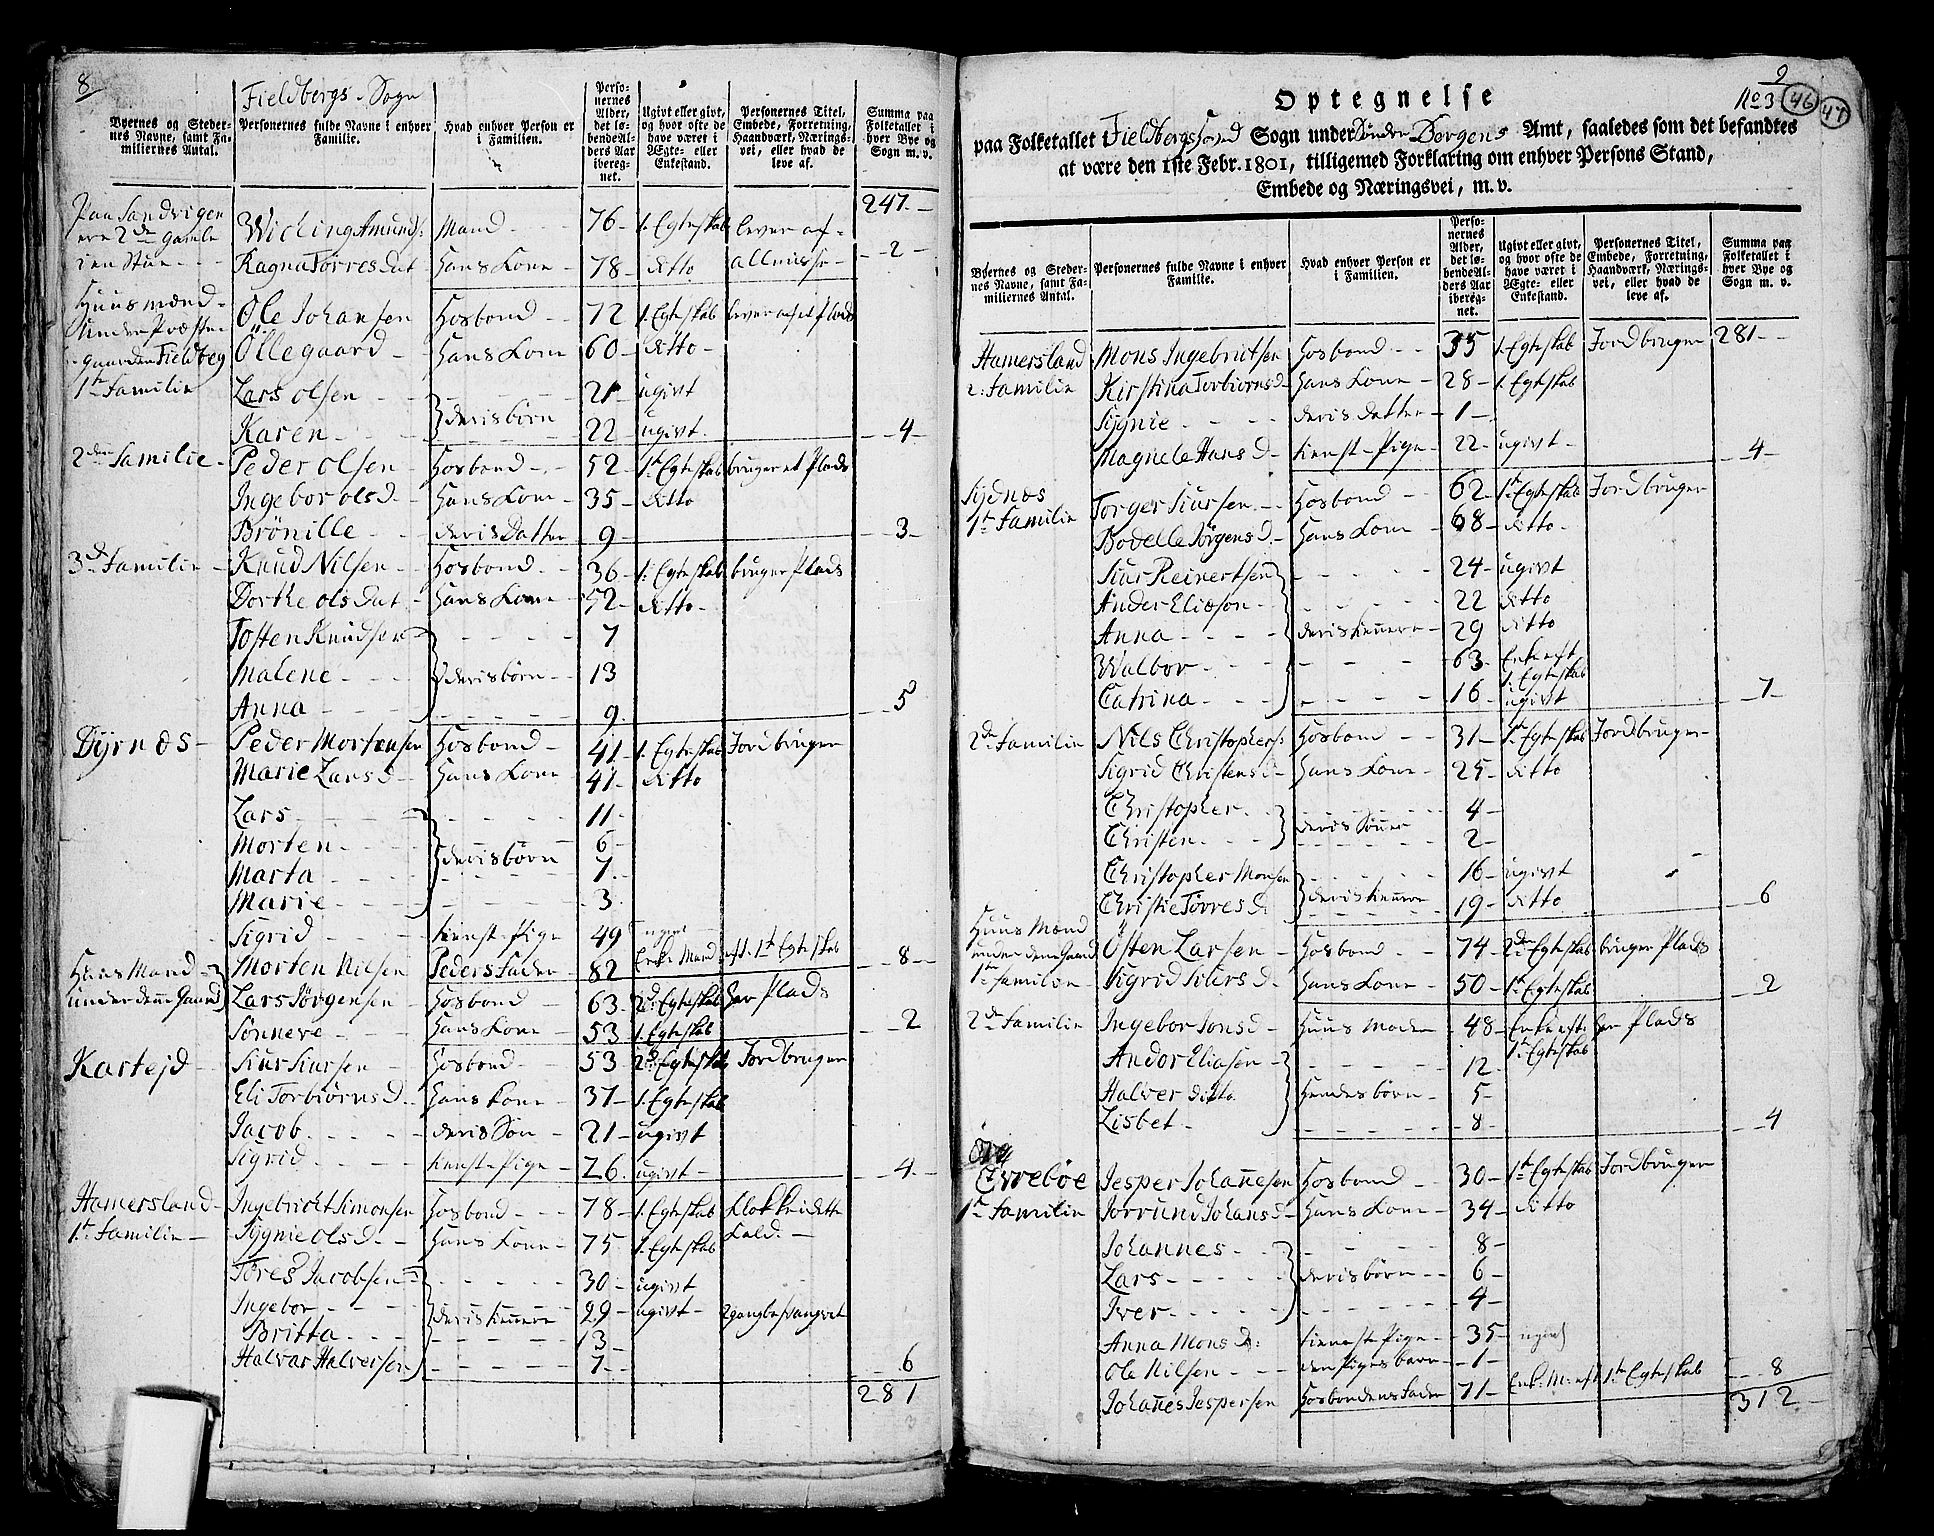 8.
Fieldbergs Sogn
Byernes og Steder-nes Navne, samt Fa-miliernes Antal.
Personernes fulde Navne i enhver Familie.
Hvad enhver Person er i Familien.
Perso-nernes Alder, det lø-bende Al-ders Aar iberegnet.
Ugivt eller givt, og hvor ofte de have været i Ægte- eller Enkestand.
Personernes Titel, Embede, Forretning, Haandværk, Nærings-vei, eller hvad de leve af.
Summa paa Folketallet i hver Bye og Sogn m. v.
247.
Paa Sandvigen
ere 2de gamle Widing Amunds: Mand 76 1. Egteskab lever af
i en Stue Ragna Torres Dat Hans Kone 78 ditto almisse 2
Huusmænd
under Præste Ole Johansen Hosbond 72 1. Egteskab lever af sit Plads
gaarden Fieldberg Ollegaard Hans Kone 60 ditto
1te Familie Lars Olsen 21 ugivt
Karen deris børn 22 ugivt 4
2den Familie Peder Olsen Hosbond 52 1te Egteskab bruger et Plads
Ingebor Olsd Hans Kone 35 ditto
Brönille deris Datter 9 3
3de Familie Knud Nilsen Hosbond 36 1. Egteskab bruger Plads
Dorthe Olsdat Hans Kone 52 ditto
Tosten Knudsen 7
Malene deris børn 13
Anna 9 5
Dyrnes Peder Mortensen Hosbond 41 1. Egteskab Jordbruger
Marie Larsd Hans Kone 41 ditto
Lars 11
Morten 6
Marta deris børn 7
Marie 3
Sigrid tienst Pige 49 ugivt
Morten Nilsen Peders Fader 82 Enke Mand eft. 1te Egteskab 8
Huus Mand
under denne Gaard Lars Jørgensen Hosbond 63 2de Egteskab har Plads
Sönneve Hans Kone 53 1. Egteskab 2
Kartejd Siur Siursen Hosbond 53 2de Egteskab Jordbruger
Eli Torbiørnsd Hans Kone 37 1. Egteskab
Jacob deris Søn 21 ugivt
Sigrid tienst Pige 26 ugivt 4
Hamersland Ingebricht Simonsen Hosbond 78 1. Egteskab
1te Familie Sygnie Olsd Hans Kone 75 1. Egteskab
Tores Jacobsen 30 ugivt
Ingebor deris tienere 29 ugivt
Britta 13
Halvar Halversen 7 6
281
9
No 3 46 47
Optegnelse
paa Folketallet Fieldbergs Sogn Sogn under Sønder Bergens Amt, saaledes som det befandtes
at være den 1ste Febr. 1801, tilligemed Forklaring om enhver Persons Stand,
Embede og Næringsvei, m. v.
Byernes og Steder-nes Navne, samt Fa-miliernes Antal.
Personernes fulde Navne i enhver Familie.
Hvad enhver Person er i Familien.
Perso-nernes Alder, det lø-bende Al-ders Aar iberegnet.
Ugivt eller givt, og hvor ofte de have været i Ægte- eller Enkestand.
Personernes Titel, Embede, Forretning, Haandværk, Nærings-vei, eller hvad de leve af.
Summa paa Folketallet i hver Bye og Sogn m. v.
Hamersland Mons Ingebrictsen Hosbond 35 1. Egteskab Jordbruger 281
2. Familie Kirstina Torbiørnsd Hans Kone 28 1. Egteskab
Sygnie deris Datter 1
Magnele Hansd tienst Pige 22 ugivt 4
Sydnæs Torger Siursen Hosbond 62 1te Egteskab Jordbruger
1te Familie Bodelle Jørgensd Hans Kone 68 ditto
Siur Reinertsen 24 ugivt
Ander Eliæson 22 ditto
Anna deris tienere 29 ditto
Walbor 63 Enke eft. 1. Egteskab
Catrina 16 ugivt 7
2de Familie Nils Christophers: Hosbond 31 1te Egteskab Jordbruger
Sigrid Christensd Hans Kone 25 ditto
Christopher 4
Christen deris Sønner 2
Christopher Monsen 16 ugivt
Christie Torresd deris tienere 19 ditto 6
Huus Mænd
under denne Gaard Østen Larsen Hosbond 74 2de Egteskab bruger Plads
1te Familie Sigrid Siursd Hans Kone 50 1te Egteskab 2
2de Familie Ingebor Jonsd Huus Moder 48 Enke efte 1te Egteskab har Plads
Andor Eliasen 12
Halver ditto Hendes børn 5
Lisbet 8 4
Ewebøe Jesper Johannesen Hosbond 30 1te Egteskab Jordbruger
1te Familie Jorrund Johansd Hans Kone 34 ditto
Johannes 8
Lars deris børn 6
Iver 4
Anna Mons D: tienest Pige 35 ugivt
Ole Nilsen den Piges barn 1
Johannes Jespersen Hosbondens Fader 71 Enk: M: eft 1te Egteskab 8
312